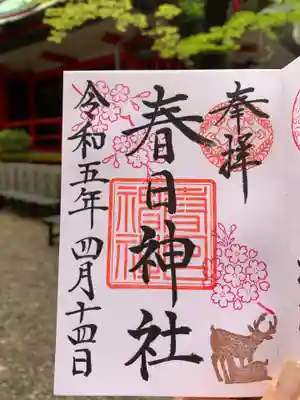 奉拝
春日神社
令和五年四月十四日